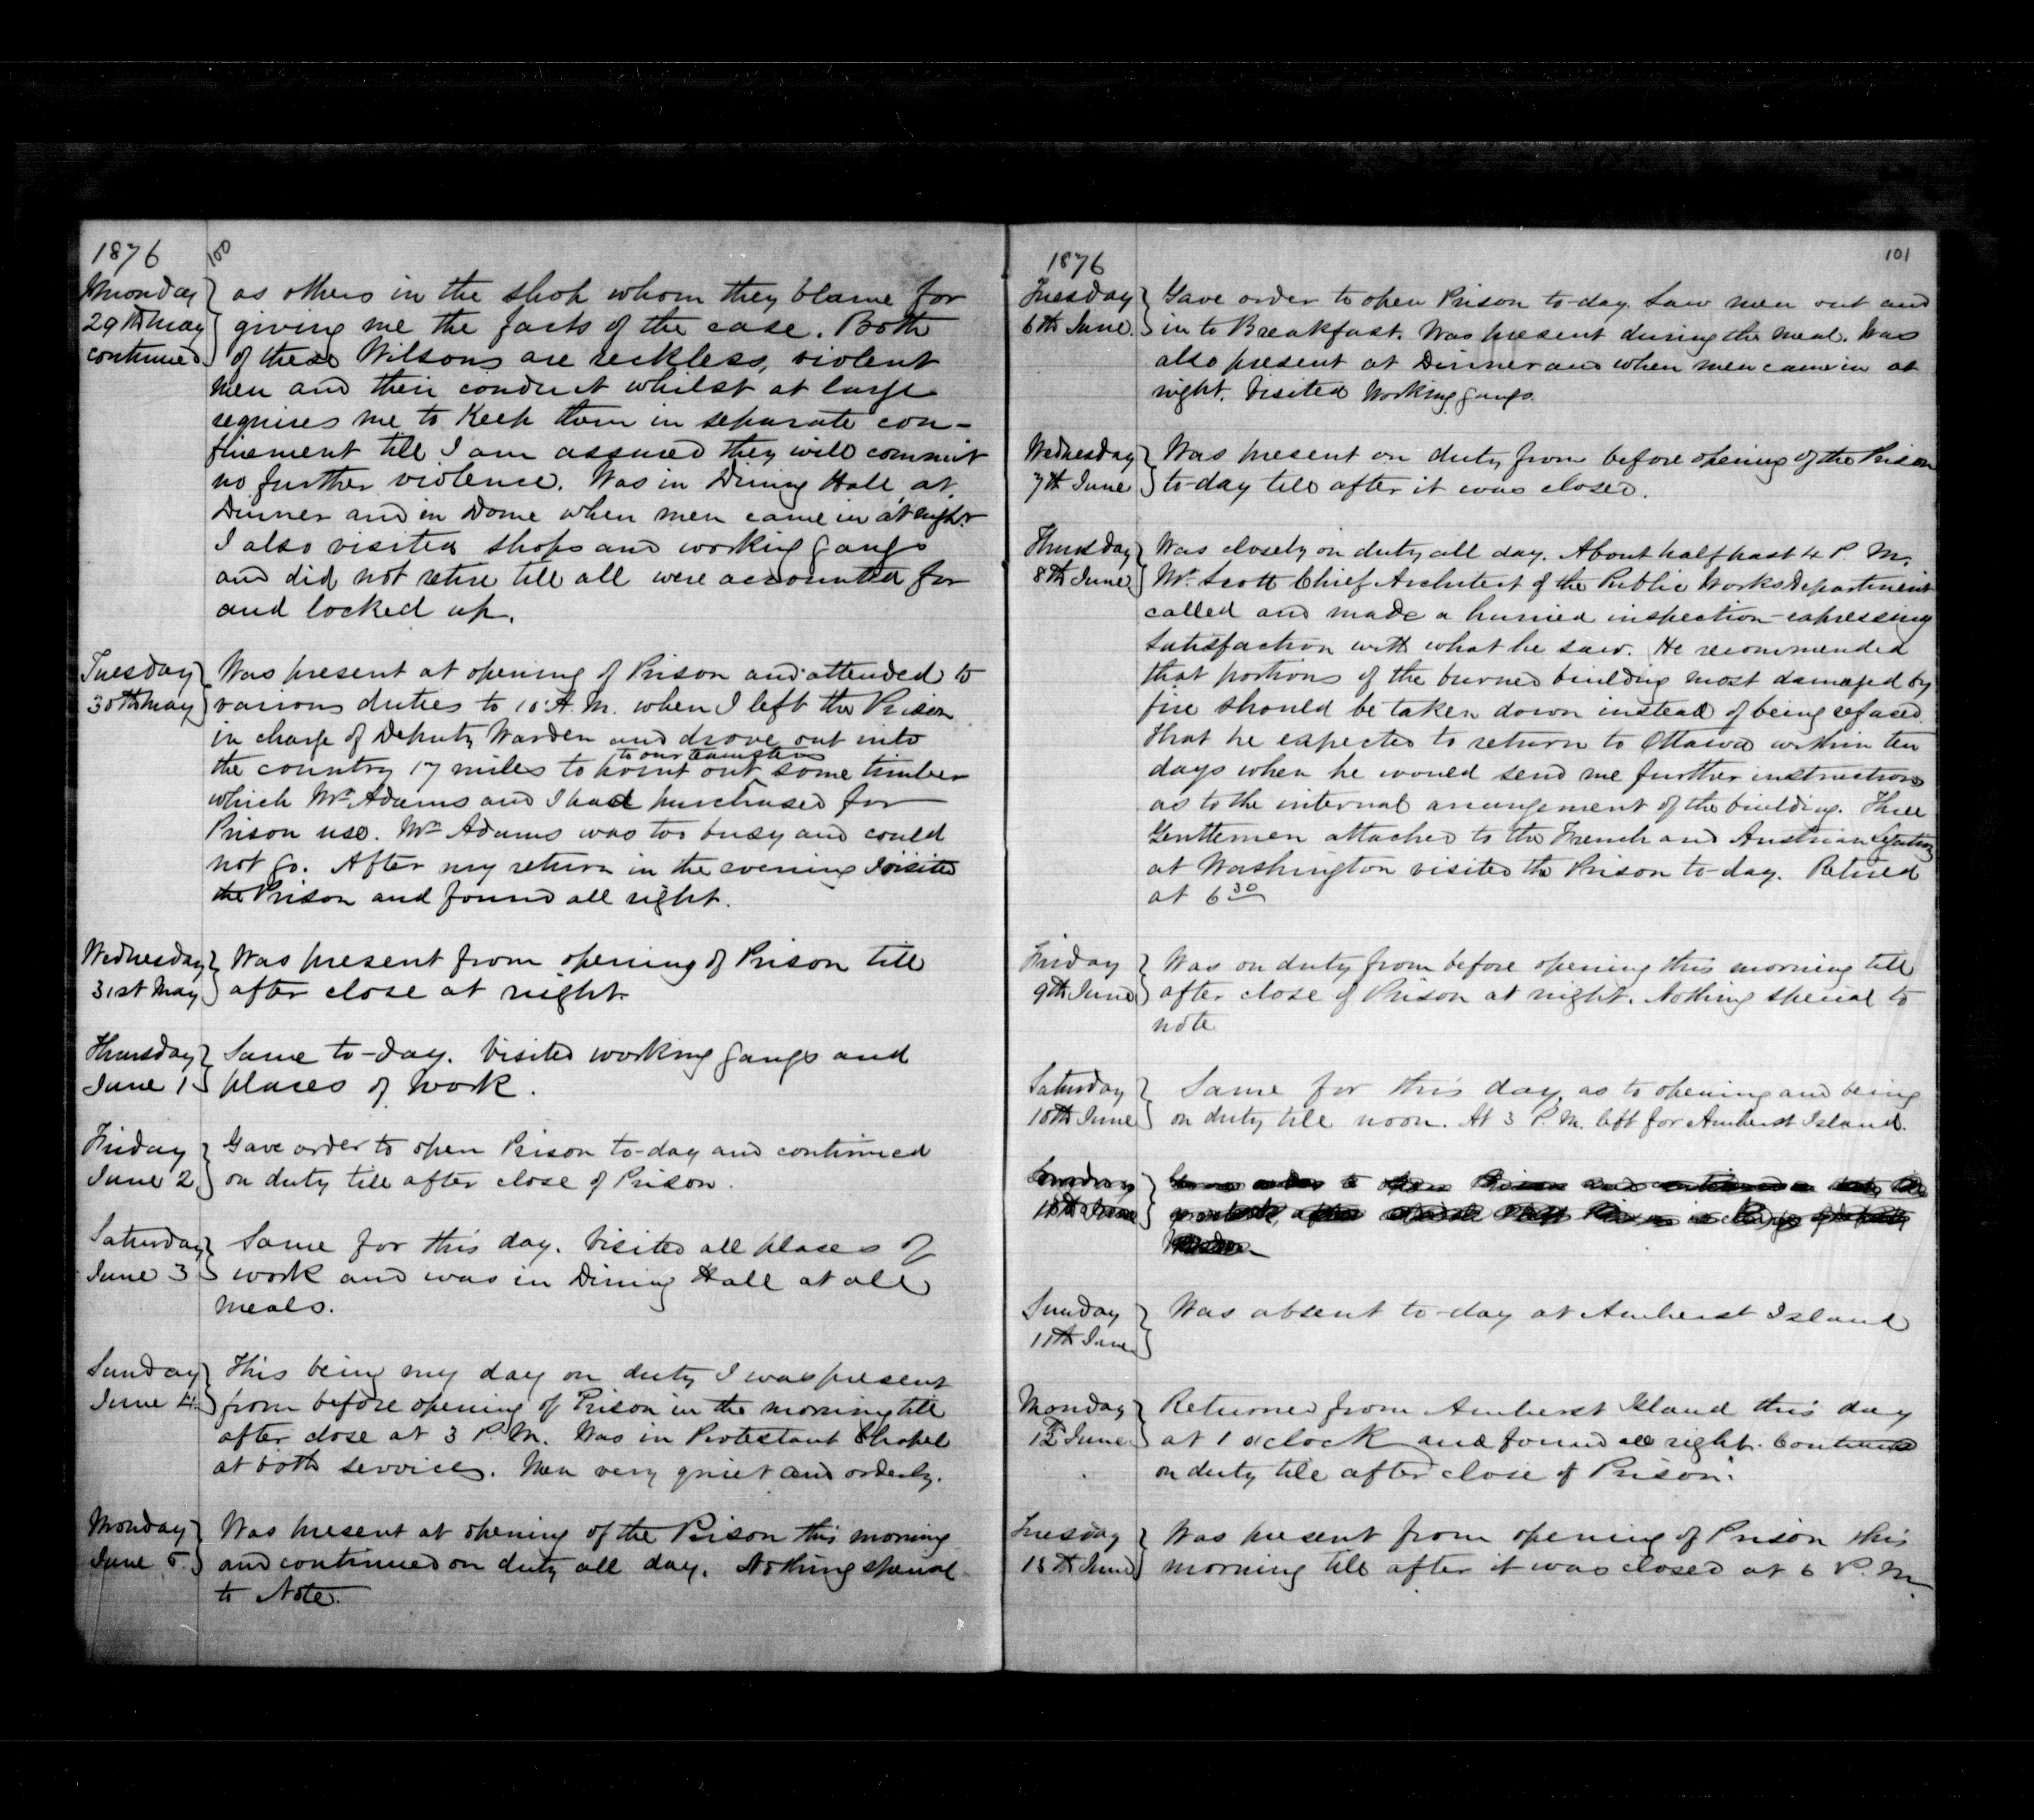 1876
100
Monday
29th May
continued
as others in the shop whom they blame for
giving me the facts of the case. Both
of these Wilsons are reckless, violent
men and their conduct whilst at large
requires me to Keep them in separate con-
finement till I am assured they will commit
no further violence. Was in Dining Hall at
Dinner and in Dome when men came in at night
I also visited shops and working gangs
and did not retire till all were accounted for
and locked up.
Tuesday
30th May
Was present at opening of Prison and attended to
various duties to 10 A.M. when I left the Prison
in charge of Deputy Warden and drove out into
to our teamsters
the country 17 miles to point out some timber
which Mr Adams and I had purchased for
Prison use. Mr Adams was too busy and could
not go. After my return in the evening I visited
the Prison and found all right.
Wednesday
31st May
Was present from opening of Prison till
after close at night.
Thursday
June 1
Same to-day. Visited working gangs and
places of work.
Friday
June 2
Gave order to open Prison to-day and continued
on duty till after close of Prison.
Saturday
June 3
Same for this day. Visited all places of
work and was in Dining Hall at all
meals.
Sunday
June 4
This being my day on duty I was present
from before opening of Prison in the morning till
after close at 3 P.M. Was in Protestant Chapel
at both services. Men very quiet and orderly.
Monday
June 5
Was present at opening of the Prison this morning
and continued on duty all day. Nothing special
to Note.
1876
101
Tuesday
6th June.
Gave order to open Prison to-day. Saw men out and
in to Breakfast. Was present during the meal. Was
also present at Dinner and when men came in at
night. Visited Working gangs.
Wednesday
7th June
Was present on duty from before opening of the Prison
to-day till after it was closed.
Thursday
8th June
Was closely on duty all day. About half past 4 P.M.
Mr. Scott Chief Architect of the Public Works Department
called and made a hurried inspection - expressing
satisfaction with what he saw. He recommended
that portions of the burned building most damaged by
fire should be taken down instead of being refaced.
that he expected to return to Ottawa within ten
days when he would send me further instructions
as to the internal arrangement of the building. Three
Gentlemen attached to the French and Austrian Legations
at Washington visited the Prison to-day. Retired
at 6 30
Friday
9th June
Was on duty from before opening this morning till
after close of Prison at night. Nothing special to
note
Saturday
10th June
Same for this day, as to opening and being
on duty till noon. At 3 P.M. left for Amherst Island.
Sunday
11th June
Was absent to-day at Amherst Island
Monday
12th June
Returned from Amherst Island this day
at 1 o'clock and found all right. Continued
on duty till after close of Prison.
Tuesday
13th June
Was present from opening of Prison this
morning till after it was closed at 6 P.M.